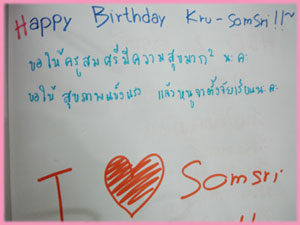 Happy Birthday Kru-Somsri!!~
ขอให้ครูสมศรีมีความสุขมาก² นะคะ
ขอให้ สุขภาพแข็งแรง แล้วหนูจะตั้งใจเรียนนะคะ
I ♥ Somsri
!!